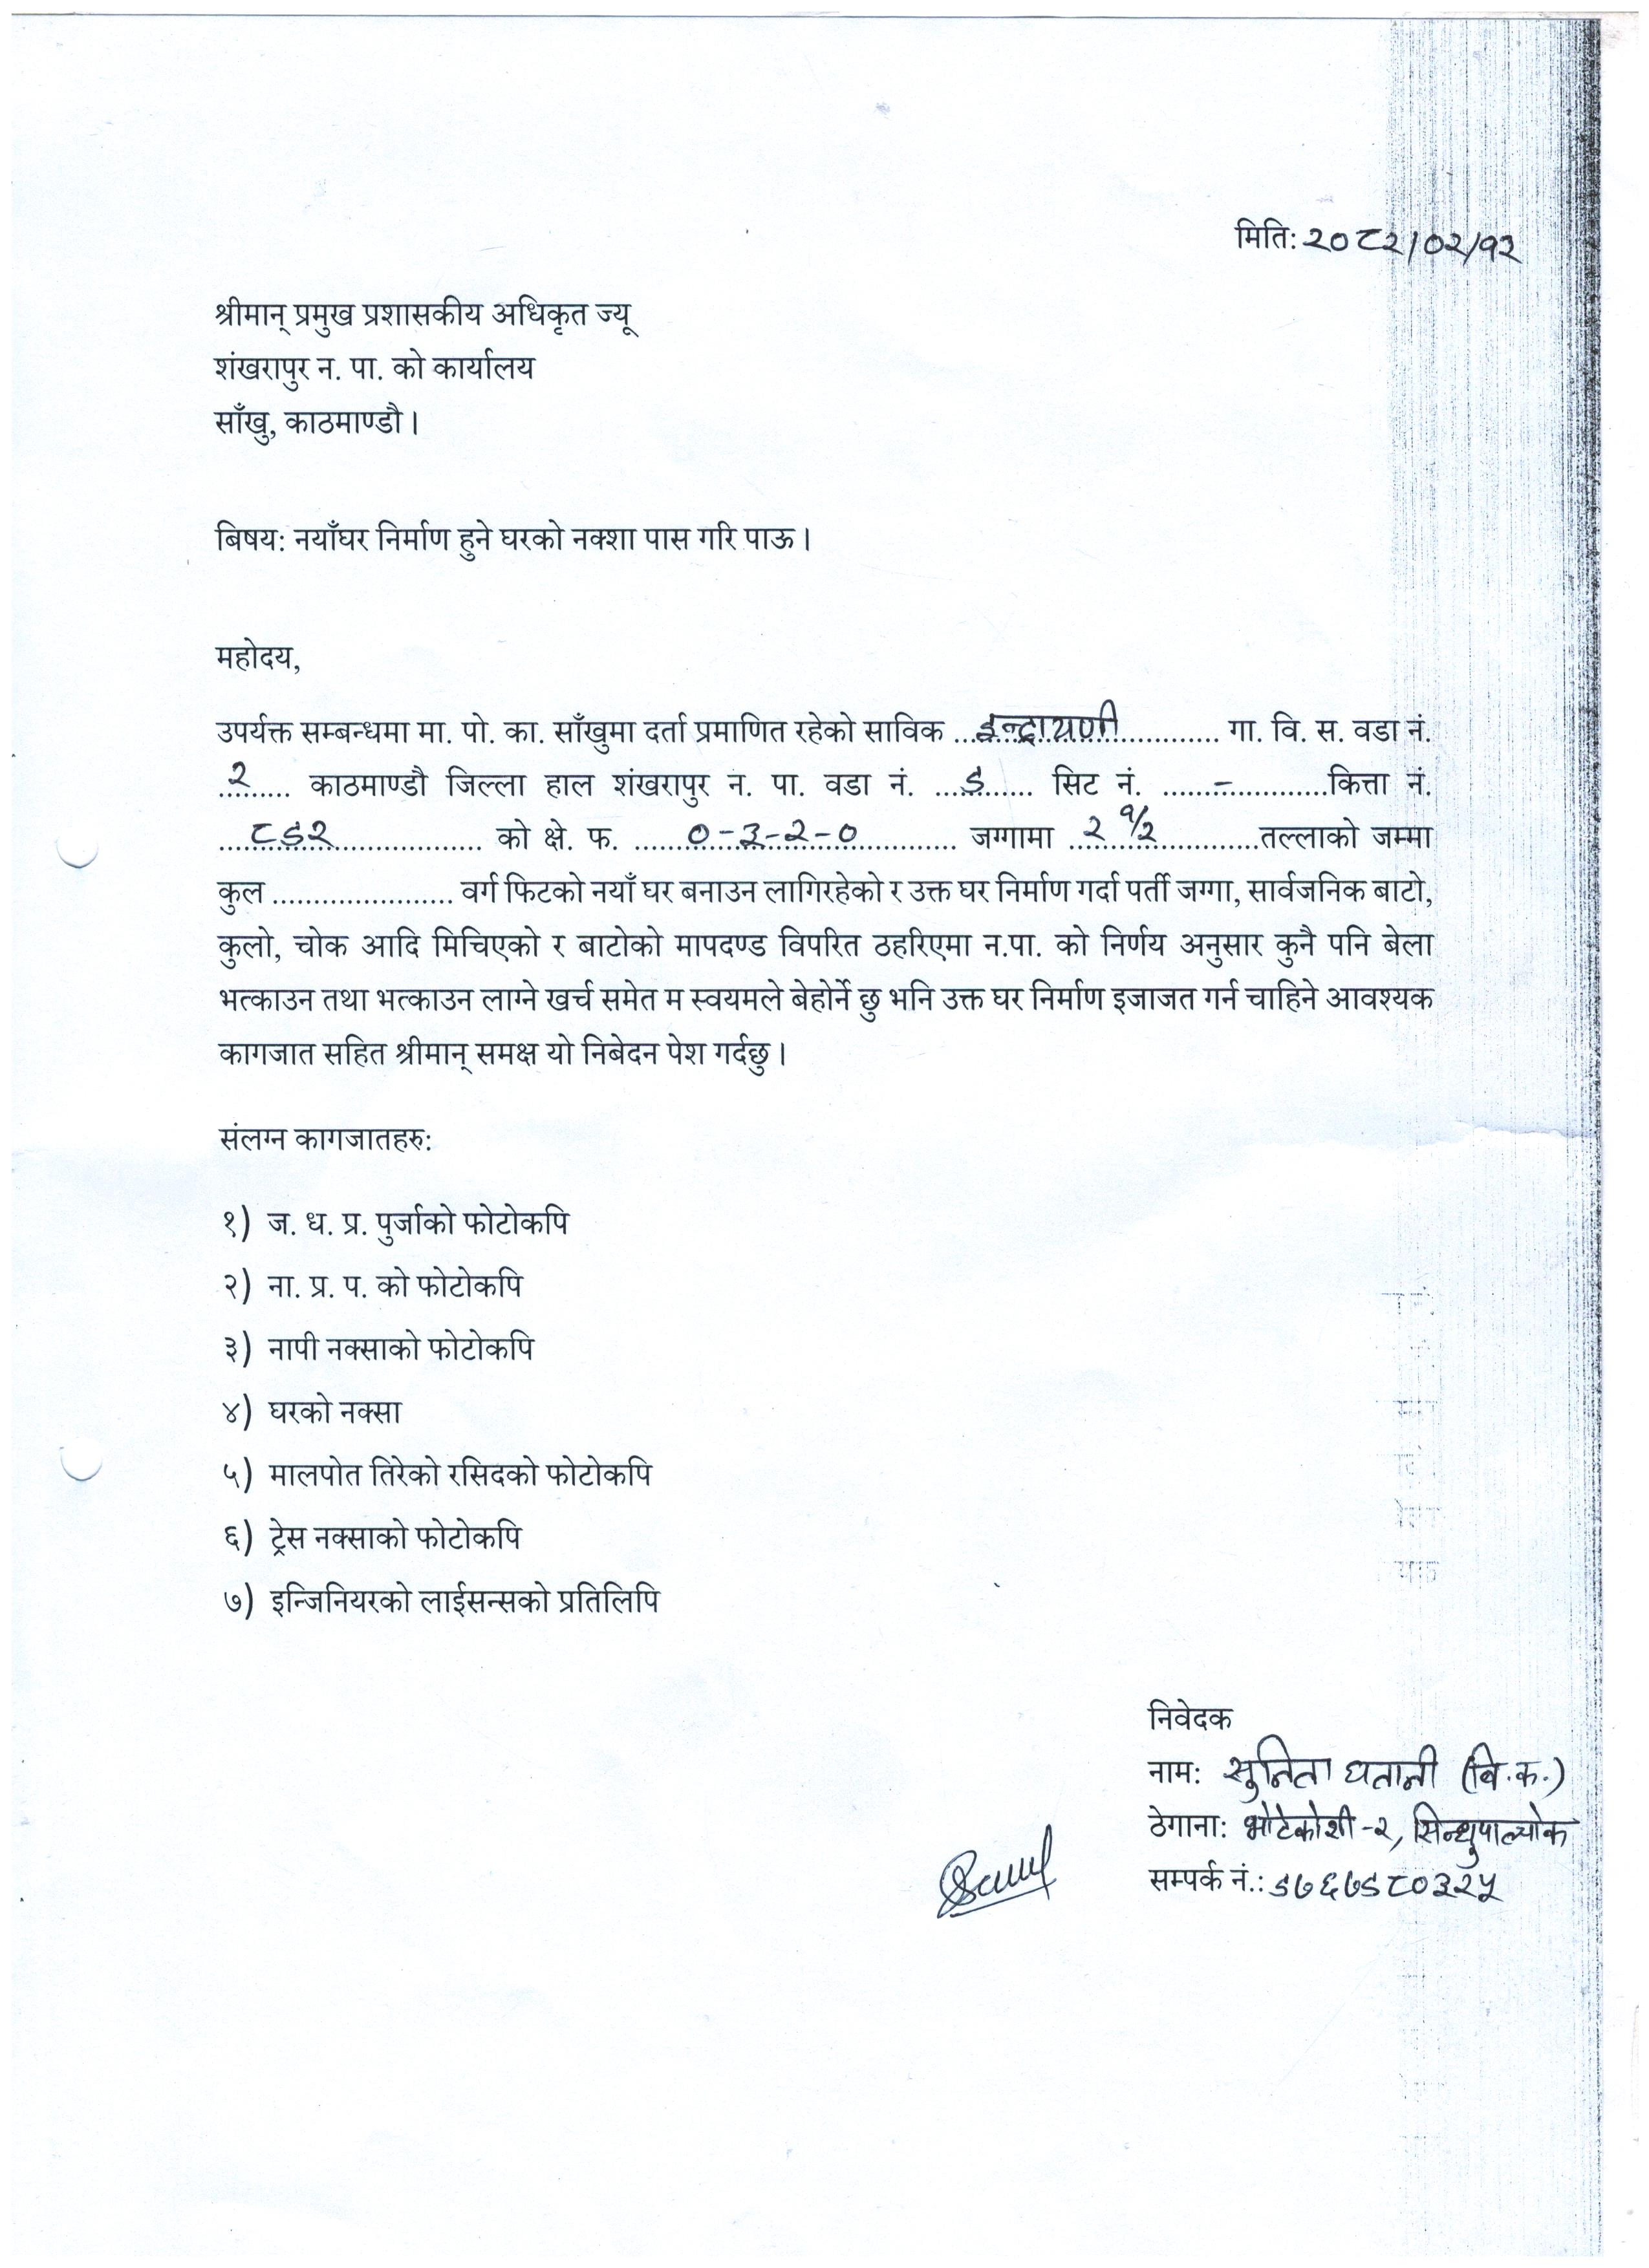 मिति: २०८२/०२/१२
श्रीमान् प्रमुख प्रशासकीय अधिकृत ज्यू
शंखरापुर न. पा. को कार्यालय
साँखु, काठमाण्डौ।
बिषय: नयाँघर निर्माण हुने घरको नक्शा पास गरि पाऊ।
महोदय,
उपर्यक्त सम्बन्धमा मा. पो. का. साँखुमा दर्ता प्रमाणित रहेको साविक ...इन्द्रायणी............ गा. वि. स. वडा नं.
..२....... काठमाण्डौ जिल्ला हाल शंखरापुर न. पा. वडा नं. ...९...... सिट नं. ......-............कित्ता नं.
....८९२.................. को क्षे. फ. ......०-३-२-०............ जग्गामा ..२ १/२............तल्लाको जम्मा
कुल ...................... वर्ग फिटको नयाँ घर बनाउन लागिरहेको र उक्त घर निर्माण गर्दा पर्ती जग्गा, सार्वजनिक बाटो,
कुलो, चोक आदि मिचिएको र बाटोको मापदण्ड विपरित ठहरिएमा न.पा. को निर्णय अनुसार कुनै पनि बेला
भत्काउन तथा भत्काउन लाग्ने खर्च समेत म स्वयमले बेहोर्ने छु भनि उक्त घर निर्माण इजाजत गर्न चाहिने आवश्यक
कागजात सहित श्रीमान् समक्ष यो निबेदन पेश गर्दछु।
संलग्न कागजातहरु:
१) ज. ध. प्र. पुर्जाको फोटोकपि
२) ना. प्र. प. को फोटोकपि
३) नापी नक्साको फोटोकपि
४) घरको नक्सा
५) मालपोत तिरेको रसिदको फोटोकपि
६) ट्रेस नक्साको फोटोकपि
७) इन्जिनियरको लाईसन्सको प्रतिलिपि
निवेदक
नाम: सुनिता घतानी (वि.क.)
ठेगाना: भोटेकोशी-२, सिन्धुपाल्चोक
सम्पर्क नं.: ९७६७९८०३२५